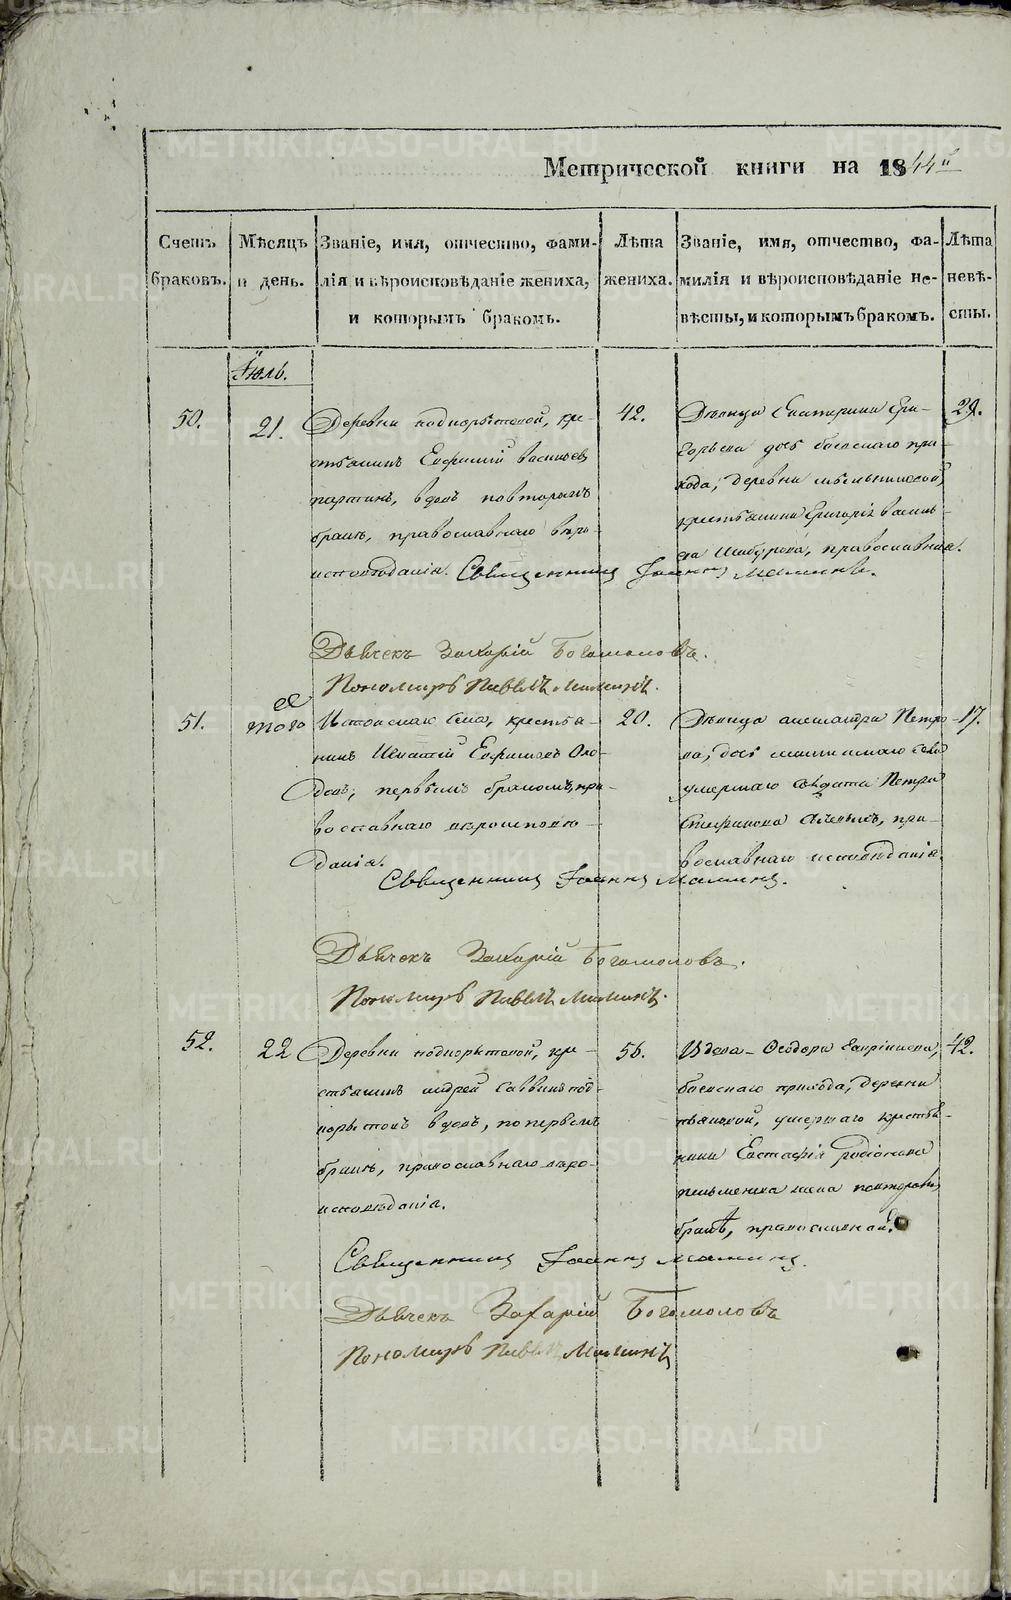 Метрической книги на 1844й
Счетъ браковъ.
Мѣсяцъ и день.
Званіе, имя, отчество, фами-
лія и вѣроисповѣданіе жениха,
и которымъ бракомъ.
Лѣта жениха.
Званіе, имя, отчество, фа-
милія и вѣроисповѣданіе не-
вѣсты, и которымъ бракомъ.
Лѣта невѣ-
сты.
Іюль.
50.
21.
Деревни подкорытовой, кре-
стьянинъ Евфимій Васильевъ
вдовъ повторымъ
бракѣ, православнаго вѣро-
исповѣданія.
42.
Дѣвица Екатерина Гри-
горьева дочь
хода, деревни
крестьянина Григорія Василь-
ева православная.
29.
Священникъ Іоаннъ Маминъ.
Дьячекъ Захарій Богомоловъ.
Пономарь Павелъ Маминъ.
51.
того
Села, крестья-
нинъ Игнатій Евфимовъ
первымъ бракомъ, пра-
вославнаго вѣроисповѣ-
данія.
20.
Дѣвица Александра Петро-
ва, дочь Села
умершаго Солдата Петра
пра-
вославнаго исповѣданія.
17.
Священникъ Іоаннъ Маминъ.
Дьячекъ Захарій Богомоловъ.
Пономарь Павелъ Маминъ.
52.
22
Деревни подкорытовой, кре-
стьянинъ Андрей Саввинъ под-
корытовъ вдовъ, по первымъ
бракѣ, православнаго вѣро-
исповѣданія.
56.
Вдова Феодора
прихода, деревни
умершаго крестья-
нина Евстафія Родіонова
жена повторымъ
бракѣ, православной.
42.
Священникъ Іоаннъ Маминъ.
Дьячекъ Захарій Богомоловъ
Пономарь Павелъ Маминъ
METRIKI.GASO-URAL.RU